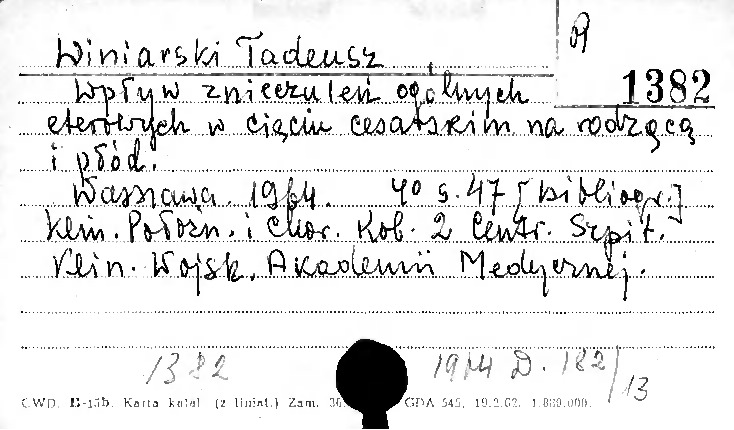 Winiarski Tadeusz
R
1382
Wpływ znieczuleń ogólnych
eterowych w cięciu cesarskim na rodzącą
i płód.
Warszawa. 1964. 40 s. 47 [bibliogr.]
Klin. Położn. i Chor. Kob. 2 Centr. Szpit.
Klin. Wojsk. Akademii Medycznej.
1382
1964 D. 182/13
C.W.D. E-15b. Karta katal (z liniat.) Zam. GDA 545, 19.2.62. 1.800.000.